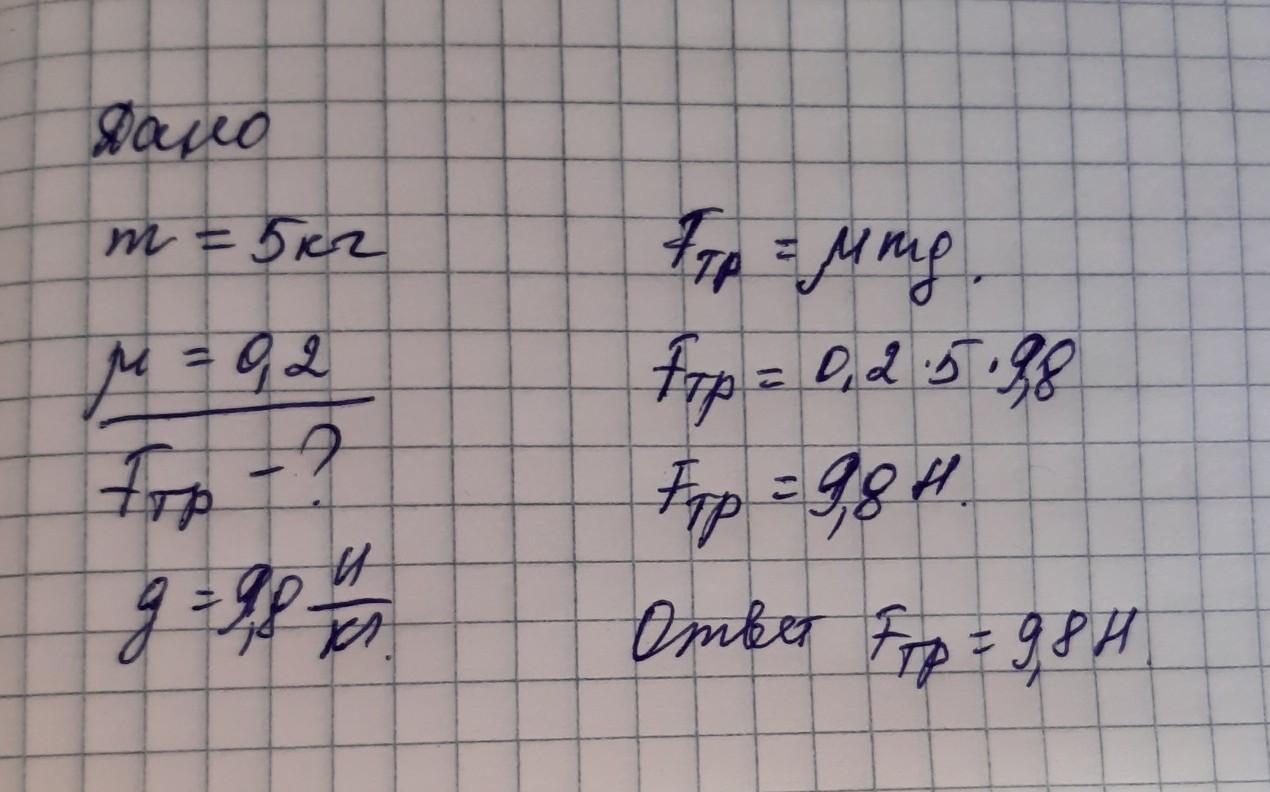 Дано
m = 5кг
μ = 0,2
Fтр - ?
g = 9,8 Н/кг.
Fтр = μmg.
Fтр = 0,2 · 5 · 9,8
Fтр = 9,8 Н.
Ответ Fтр = 9,8 Н.